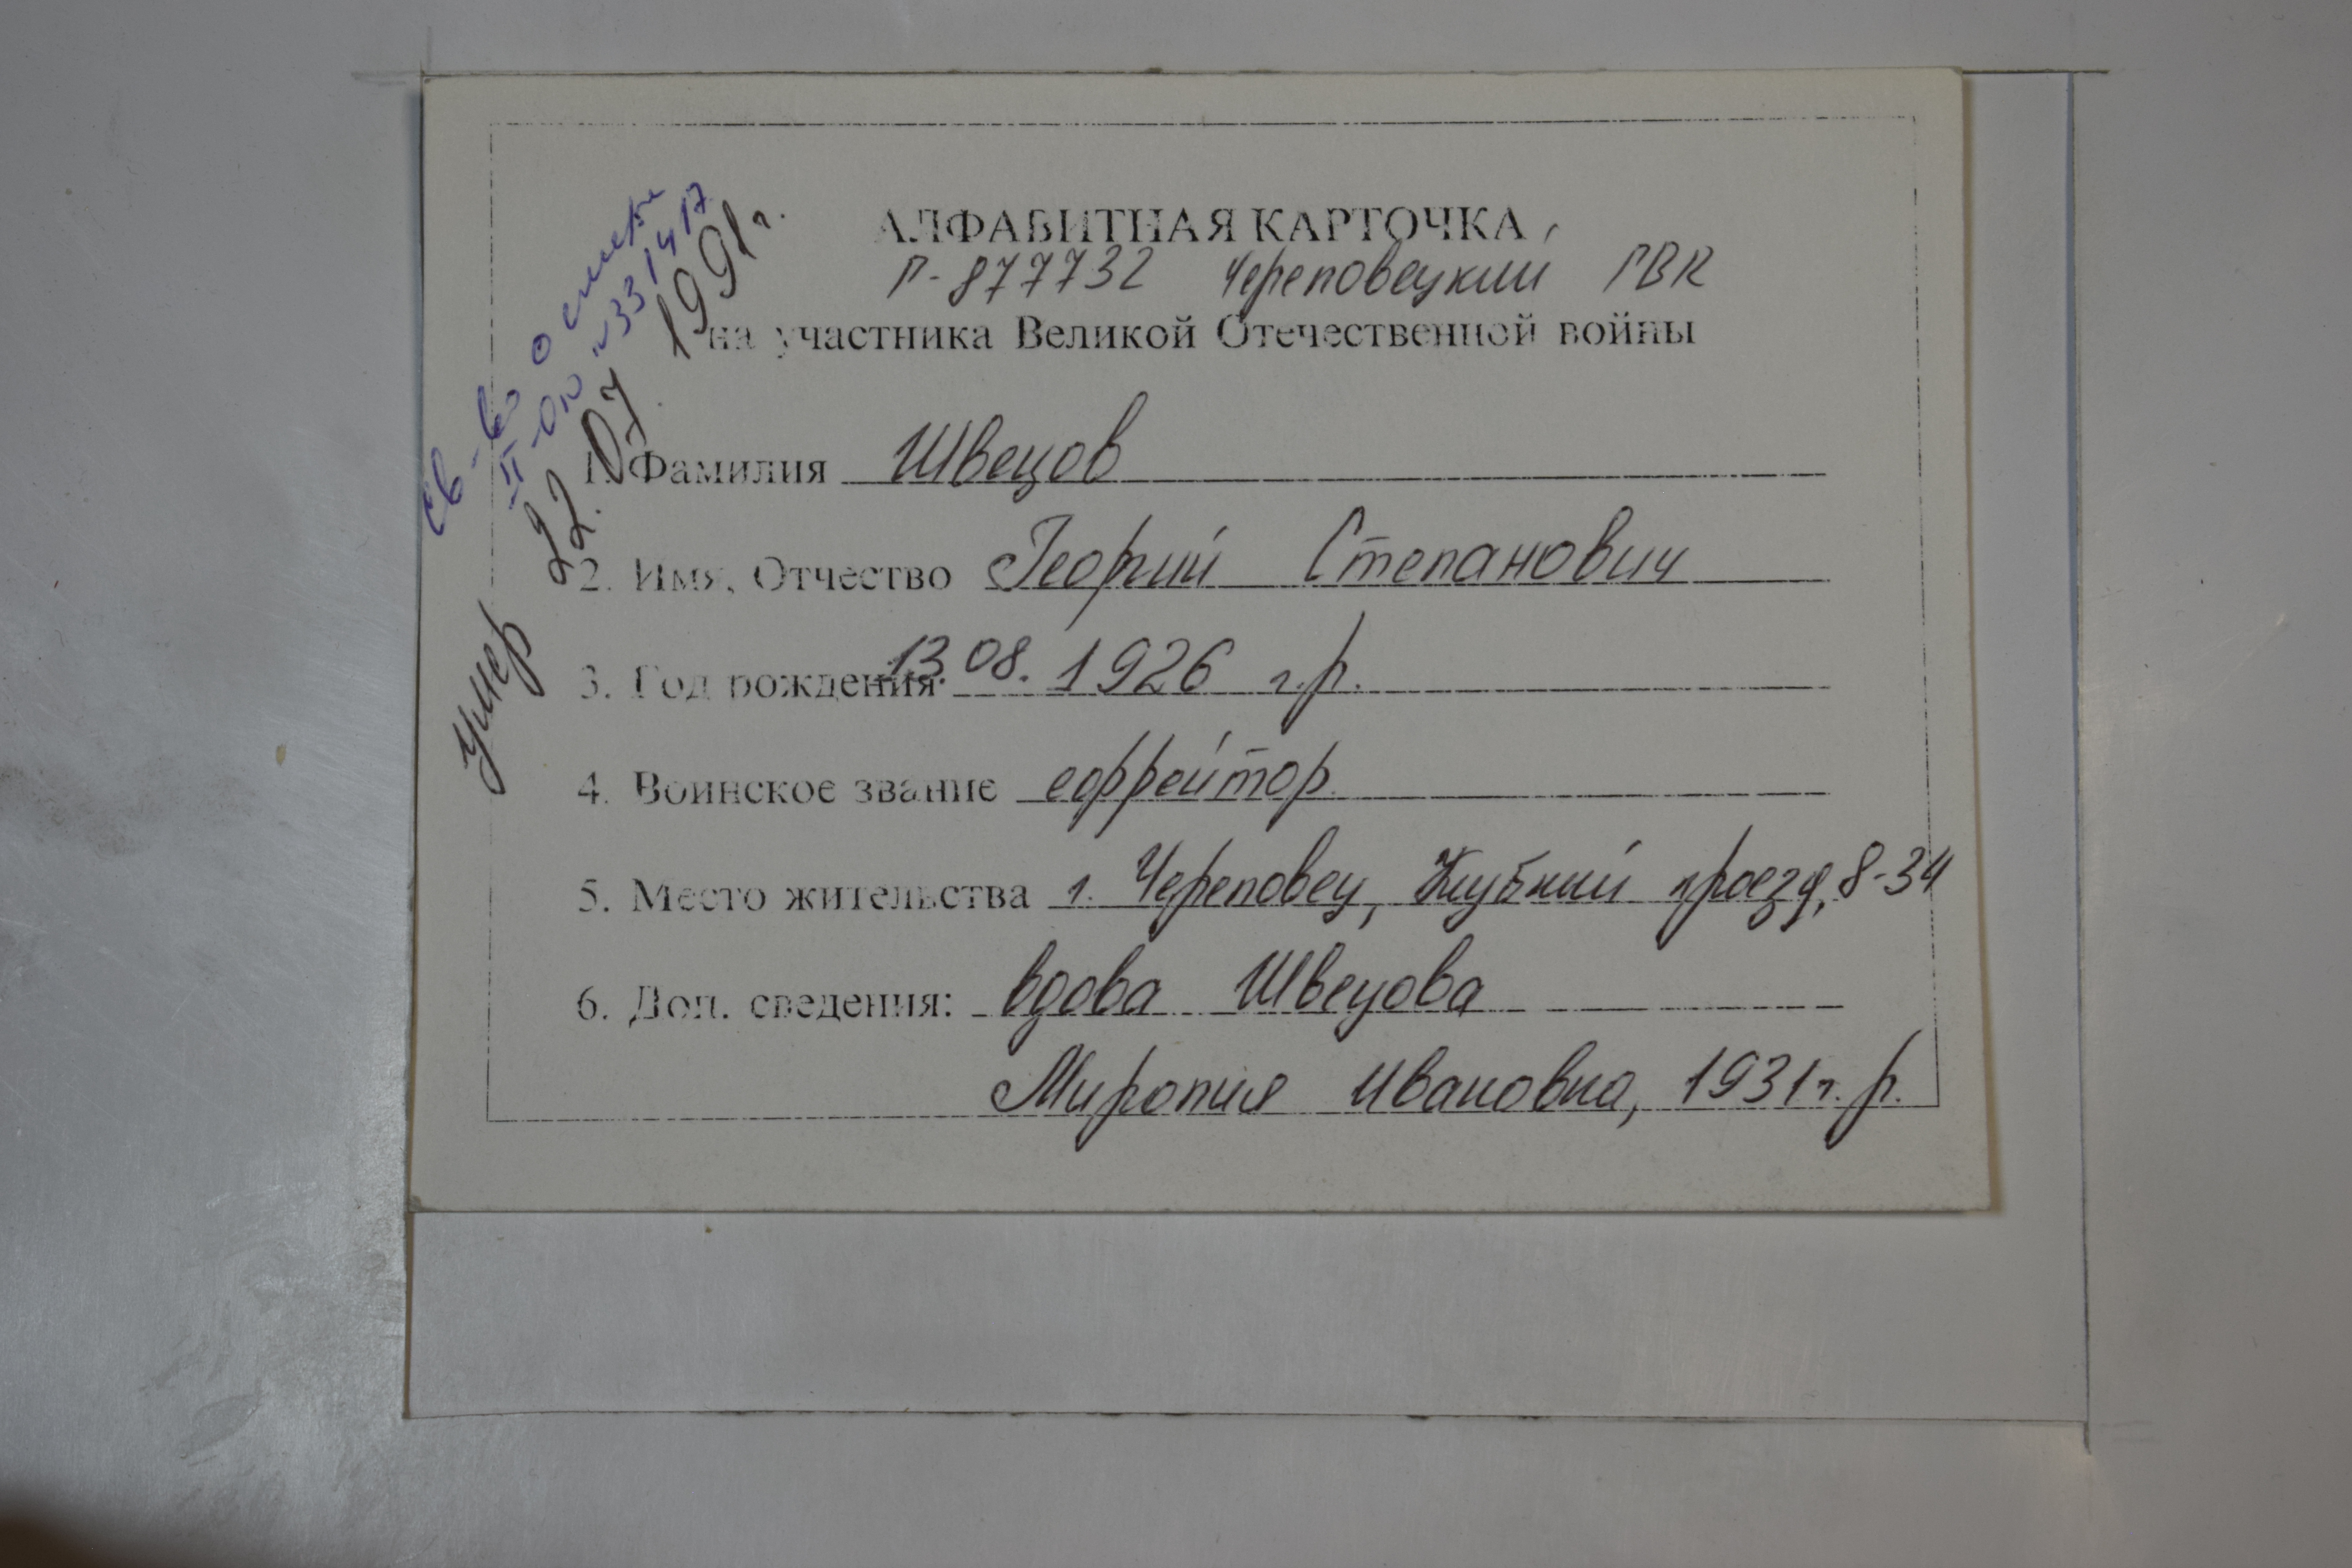 АЛФАВИТНАЯ КАРТОЧКА
П-877732 Череповецкий ГВК
на участника Великой Отечественной войны
св-во о смерти
II-ОЮ №331417
умер 22.07.1991г.
1. Фамилия Швецов
2. Имя, Отчество Георгий Степанович
3. Год рождения 13.08.1926 г.р.
4. Воинское звание ефрейтор
5. Место жительства г. Череповец, Клубный проезд, 8-34
6. Доп. сведения: вдова Швецова
Миропия Ивановна, 1931г.р.